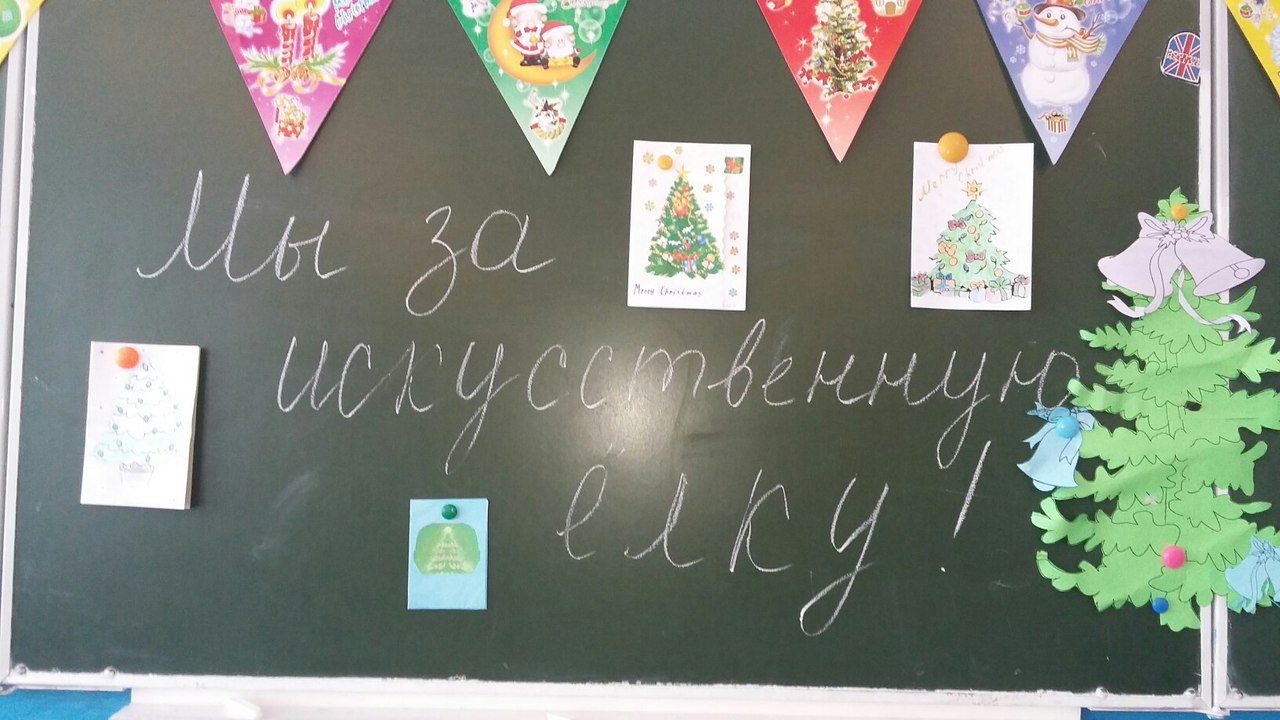 Мы за
искусственную
ёлку!
Merry Christmas
Merry Christmas